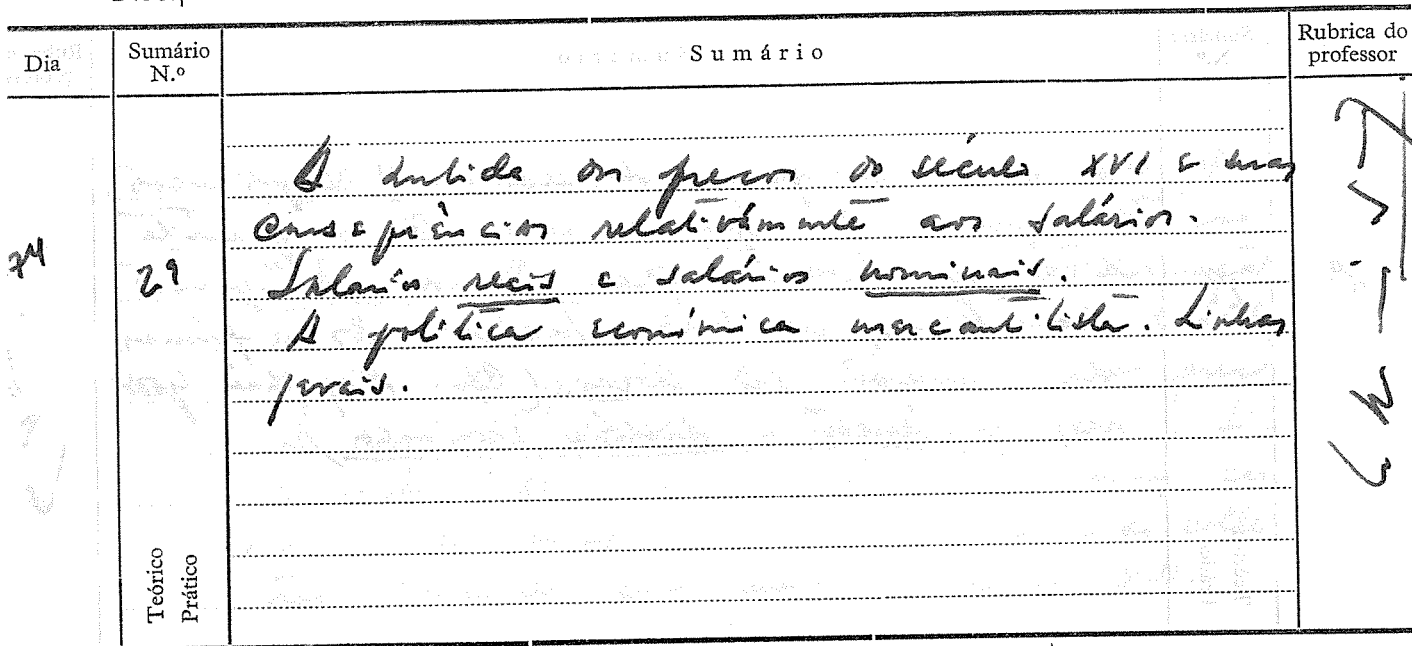 Dia
Sumário N.º
Sumário
Rubrica do professor
A subida dos preços do século XVI e suas
consequências relativamente aos salários.
29
Salários reais e salários nominais.
A política económica mercantilista. Linhas
gerais.
Teórico
Prático